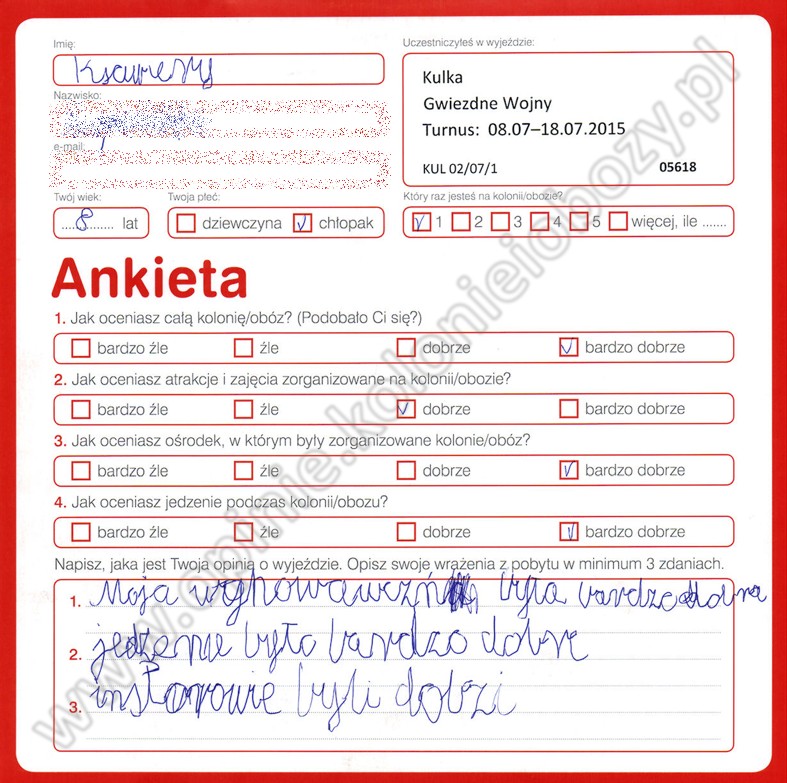 Imię:
Ksawery
Uczestniczyłeś w wyjeździe:
Kulka
Gwiezdne Wojny
Turnus: 08.07–18.07.2015
KUL 02/07/1 05618
Nazwisko:
e-mail:
Twój wiek:
....8....... lat
Twoja płeć:
dziewczyna chłopak
Który raz jesteś na kolonii/obozie?
1 2 3 4 5 więcej, ile .......
Ankieta
1. Jak oceniasz całą kolonię/obóz? (Podobało Ci się?)
bardzo źle źle dobrze bardzo dobrze
2. Jak oceniasz atrakcje i zajęcia zorganizowane na kolonii/obozie?
bardzo źle źle dobrze bardzo dobrze
3. Jak oceniasz ośrodek, w którym były zorganizowane kolonie/obóz?
bardzo źle źle dobrze bardzo dobrze
4. Jak oceniasz jedzenie podczas kolonii/obozu?
bardzo źle źle dobrze bardzo dobrze
Napisz, jaka jest Twoja opinia o wyjeździe. Opisz swoje wrażenia z pobytu w minimum 3 zdaniach.
1. Moja była bardzo dobra
2. jedzenie było bardzo dobre
3. byli dobrzi
www.opinie.kolonieiobozy.pl